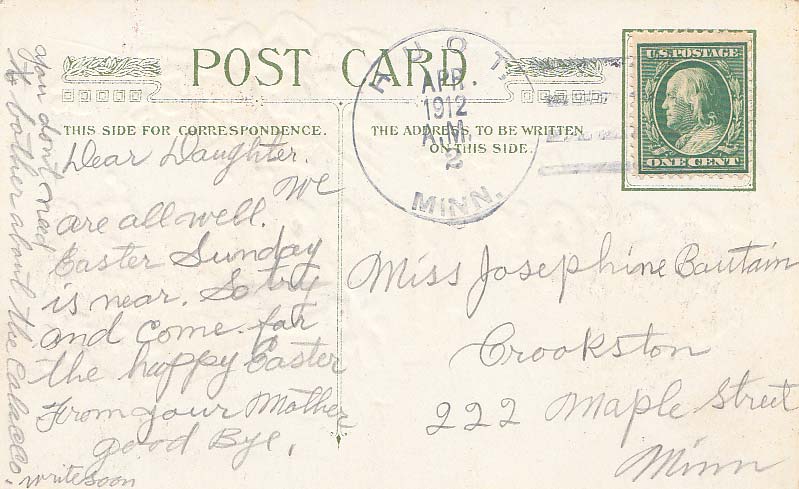 POST CARD
THIS SIDE FOR CORRESPONDENCE.
THE ADDRESS TO BE WRITTEN
ON THIS SIDE.
HUOT,
APR.
1912
A.M.
2
MINN.
U.S. POSTAGE
ONE CENT
Dear Daughter.
We
are all well.
Easter Sunday
is near. So try
and come for
the happy Easter
From your Mother
good Bye,
write soon
you dont need
to bother about the
Miss Josephine Bautain
Crookston
222 Maple Street
Minn